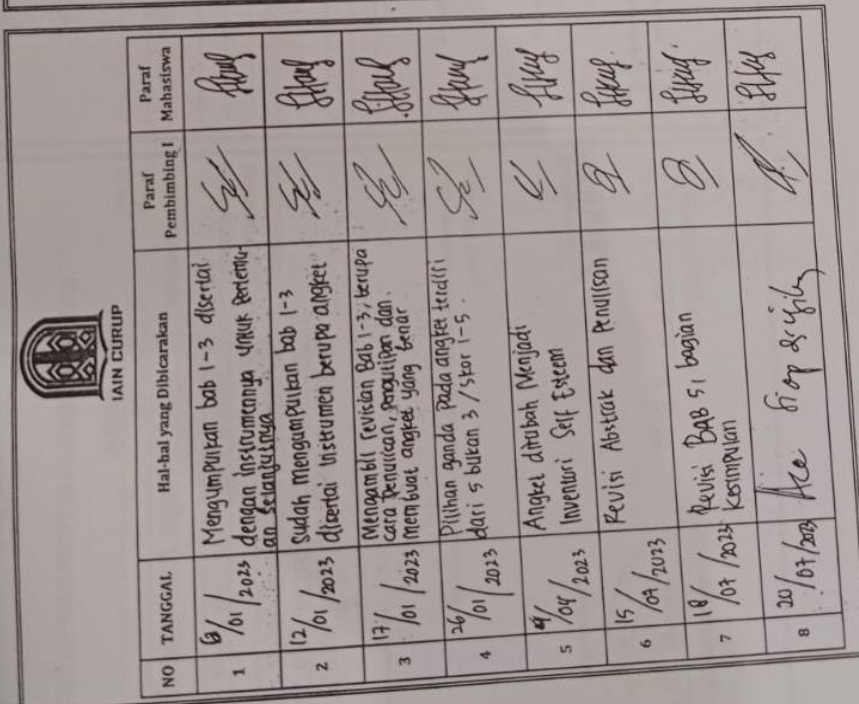 IAIN CURUP
NO TANGGAL Hal-hal yang Dibicarakan Paraf Pembimbing I Paraf Mahasiswa
1 /01/2023 Mengumpulkan bab 1-3 disertai
dengan instrumennya untuk pertemu-
an selanjutnya
2 12/01/2023 Sudah mengumpulkan bab 1-3
disertai instrumen berupa angket
3 17/01/2023 Mengambil revisian Bab 1-3, berupa
cara penulisan, pengutipan dan
membuat angket yang benar
4 26/01/2023 Pilihan ganda pada angket terdiri
dari 5 bukan 3 / skor 1-5.
5 /04/2023 Angket dirubah Menjadi
Inventori Self Esteem
6 15/07/2023 Revisi Abstrak dan Penulisan
7 18/07/2023 Revisi BAB 5, bagian
Kesimpulan
8 20/07/2023 Acc Siap di